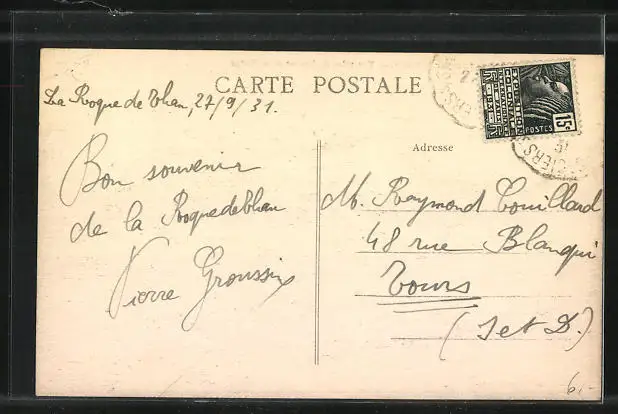 CARTE POSTALE
La Roque de Than, 27/9/31.
Bon souvenir
de la Roquedethan
Pierre Groussin
Adresse
M. Raymond Touillard
48 rue Blanqui
Tours
(I et D.)
EXPOSITION
COLONIALE
INTERNATIONALE
PARIS 1931
POSTES
15c
6,-